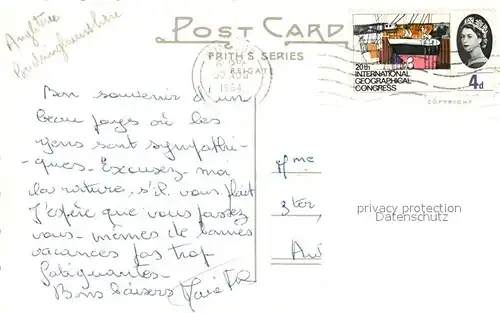 Angleterre
Buckinghamshire
POST CARD
FRITH'S SERIES
REIGATE
1964
20th
INTERNATIONAL
GEOGRAPHICAL
CONGRESS
4d
COPYRIGHT
Bon souvenir d'un
beau pays où les
gens sont sympathi-
-ques. Excusez-moi
la rature, s'il vous plaît
J'espère que vous passez
vous-mêmes de bonnes
vacances pas trop
fatiguantes.
Bons baisers
Mme
3ter
privacy protection
Datenschutz